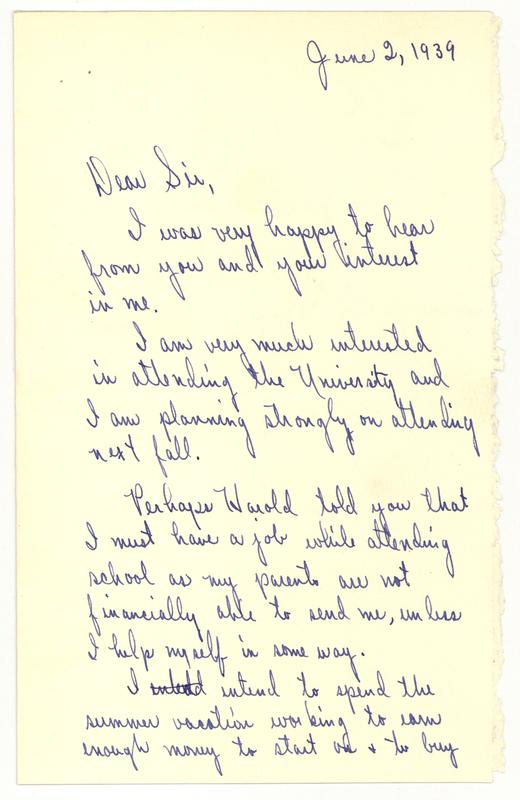 June 2, 1939
Dear Sir,
I was very happy to hear
from you and your interest
in me.
I am very much interested
in attending the University and
I am planning strongly on attending
next fall.
Perhaps Harold told you that
I must have a job while attending
school as my parents are not
financially able to send me, unless
I help myself in some way.
I intend to spend the
summer vacation working to earn
enough money to start on & to buy